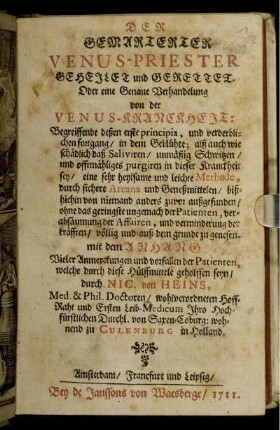 DER
GEMARTERTER
VENUS-PRIESTER
GEHEILET und GERETTET.
Oder eine Genaue Verhandelung
von der
VENUS-KRANCKHEIT:
Begreiffende deßen erste principia, und verderbli-
chen fortgang, in dem Geblühte; alß auch wie
schädlich daß Saliviren, unmäßig Schwitzen,
und offtmahliges purgiren in dieser Kranckheit
sey, eine sehr heylsame und leichte Methode,
durch sichere Arcana und Genesmittelen, biß-
hiehin von niemand anders zuvor außgefunden,
ohne das geringste ungemach der Patienten, ver-
absäumung der Affairen, und verminderung der
kräfften, völlig und auß dem grunde zu genesen.
mit dem ANHANG
Vieler Anmerckungen und vorfallen der Patienten,
welche durch diese Hülffmittele geholffen seyn,
durch NIC. von HEINS,
Med. & Phil. Doctoren, wohlverordneten Hoff-
Raht und Ersten Leib-Medicum Ihro Hoch-
fürstlichen Durchl. von Saxen-Coburg: woh-
nend zu CULENBURG in Holland.
Amsterdam, Francfurt und Leipsig,
Bey de Janssons von Waesberge, 1711.